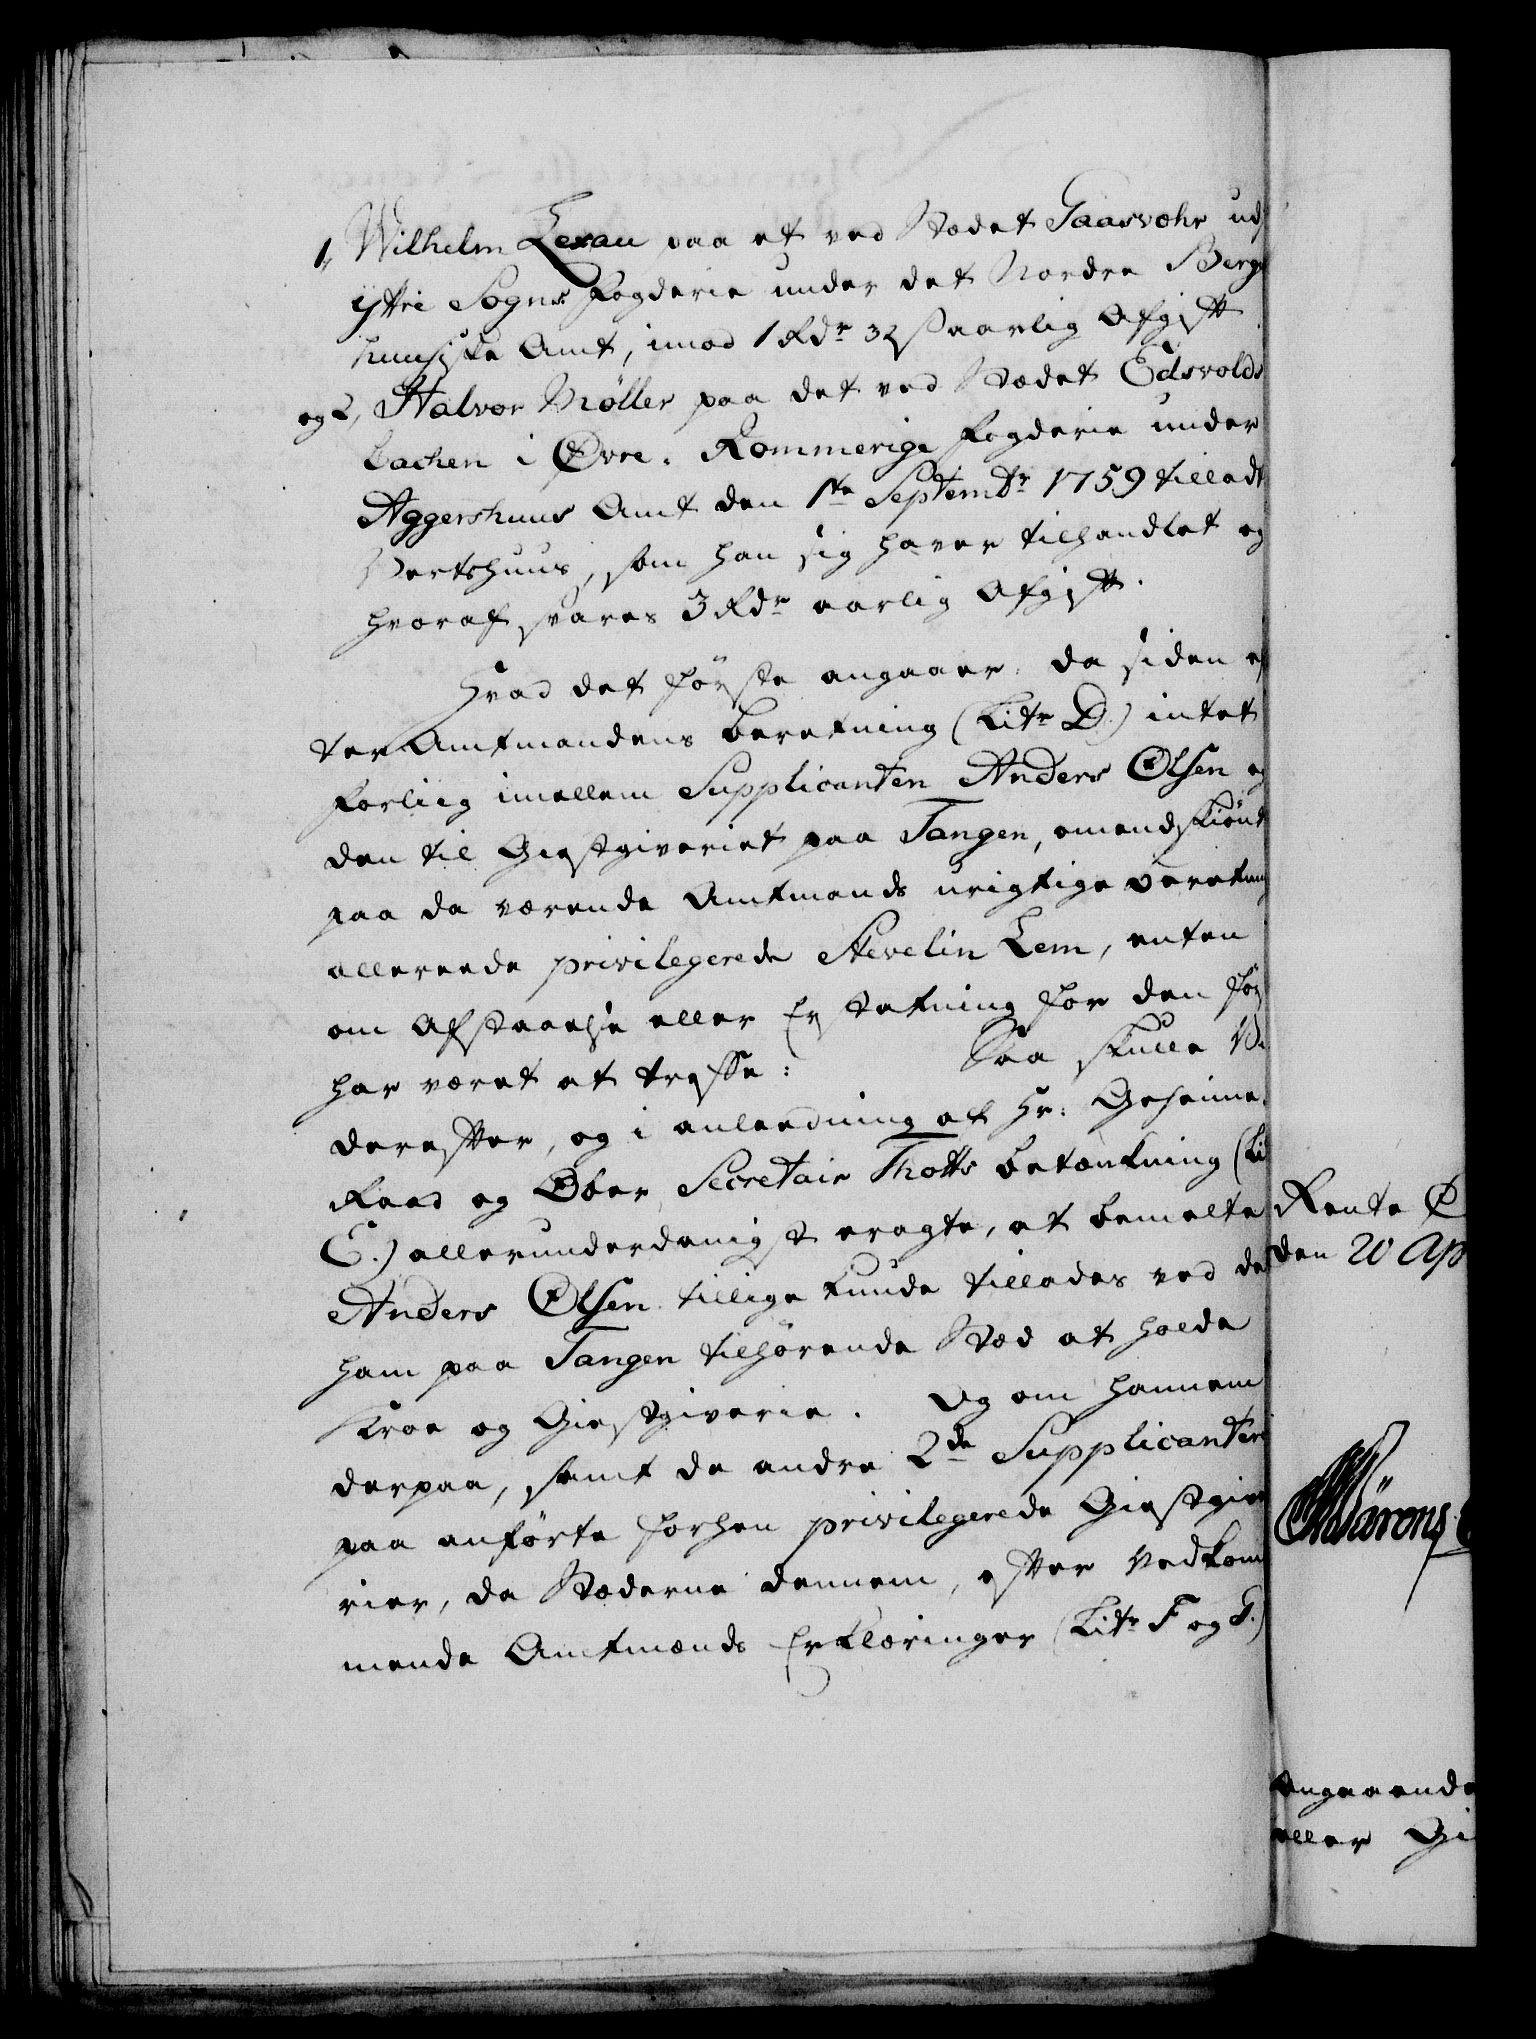 1, Wilhelm Lexau paa et ved Stædet Gaasvæhr udj
Yttre Sogns Fogderie under det Nordre Berge
huusiske Amt, imod 1 Rdr 32 s aarlig Afgift
og 2, Halvor Møller paa det ved Stædet Edsvolds
bachen i Øvre-Rommerige Fogderie under
Aggershuus Amt den 1te Septembr 1759 tilladt
Vertshuus, som han sig haver tilhandlet og
hvoraf svares 3 Rdr aarlig Afgift.
Hvad det første angaaer, da siden ef
ter Amtmandens Beretning (Litr D.) intet
Forliig imellem Supplicanten Anders Olsen og
den til Giestgiveriet paa Tangen, omendskiønt
paa da værende Amtmands urigtige Beretning
allereede privilegerede Stevelin Lem, enten
om Afstaaelse eller Erstatning for den før
har været at treffe: Saa skulle Vi
derefter, og i anleedning af Hr: Geheime-
Raad og Ober Secretair Thotts betænkning (Lit
E.) allerunderdanigst eragte, at bemelte
Anders Olsen tillige kunde tillades ved det
ham paa Tangen tilhørende Stæd at holde
Kroe og Giestgiverie. Og om hannem
derpaa, samt de andre 2de Supplicantere
paa anførte forhen privilegerede Giestgive
rier, da Stæderne dennem, efter Vedkom
mende Amtmænds Erklæringer (Litr F og G.)
Rente
den 20 Ap
Wärens
Angaaende
eller Gi